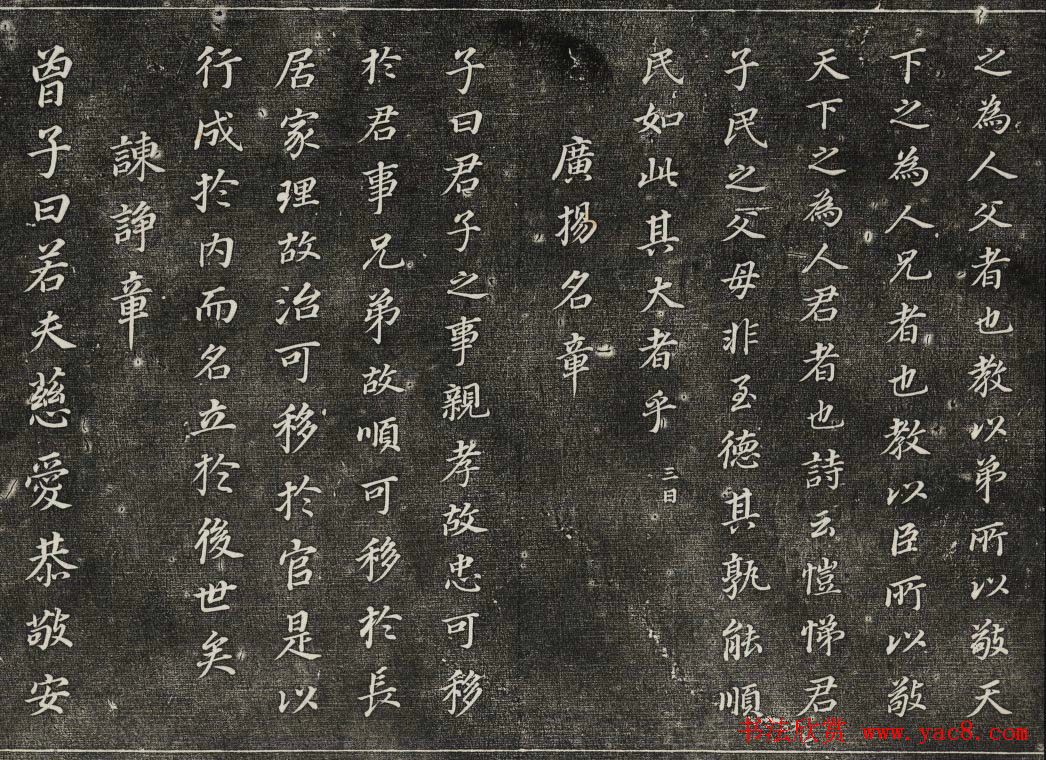 之為人父者也教以弟所以敬天
下之為人兄者也教以臣所以敬
天下之為人君者也詩云愷悌君
子民之父母非至德其孰能順
民如此其大者乎 三日
廣揚名章
子曰君子之事親孝故忠可移
於君事兄弟故順可移於長
居家理故治可移於官是以
行成於内而名立於後世矣
諫諍章
曾子曰若夫慈愛恭敬安
书法欣赏 www.yac8.com